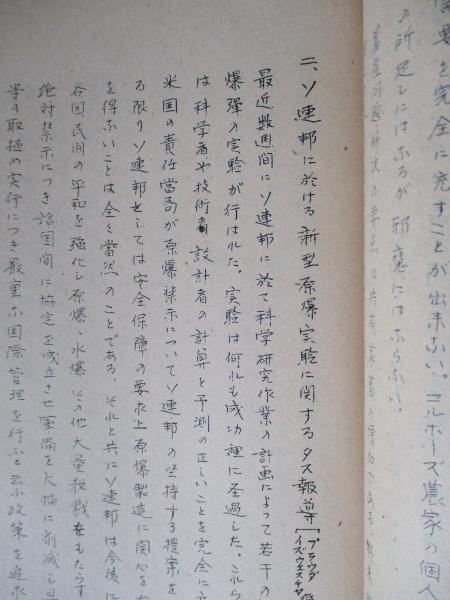 需要を完全に充すことが出来ない。コルホーズ農家の個人
の所足しにはなるが邪魔にはならない。
二、ソ連邦に於ける新型原爆実験に関するタス報導[プラウダ イズヴェスチヤ
最近数週間にソ連邦に於て科学研究作業の計画によって若干の
爆弾の実験が行はれた。実験は何れも成功裡に圣過した。これら
は科学者や技術者、設計者の計算と予測の正しいことを完全に
米国の責任当局が原爆禁示についてソ連邦の坚持する提案を
る限りソ連邦としては安全保障の要求上原爆製造に関心を
を得ないことは全く当然のことである。それと共にソ連邦は今後
各国民間の平和を強化し原爆、水爆、その他大量殺戮をもたらす
絶対禁示につき諸国間に協定を成立させ軍備を大幅に削減し
等の取極め実行につき厳重な国際管理を行ふと云ふ政策を追求